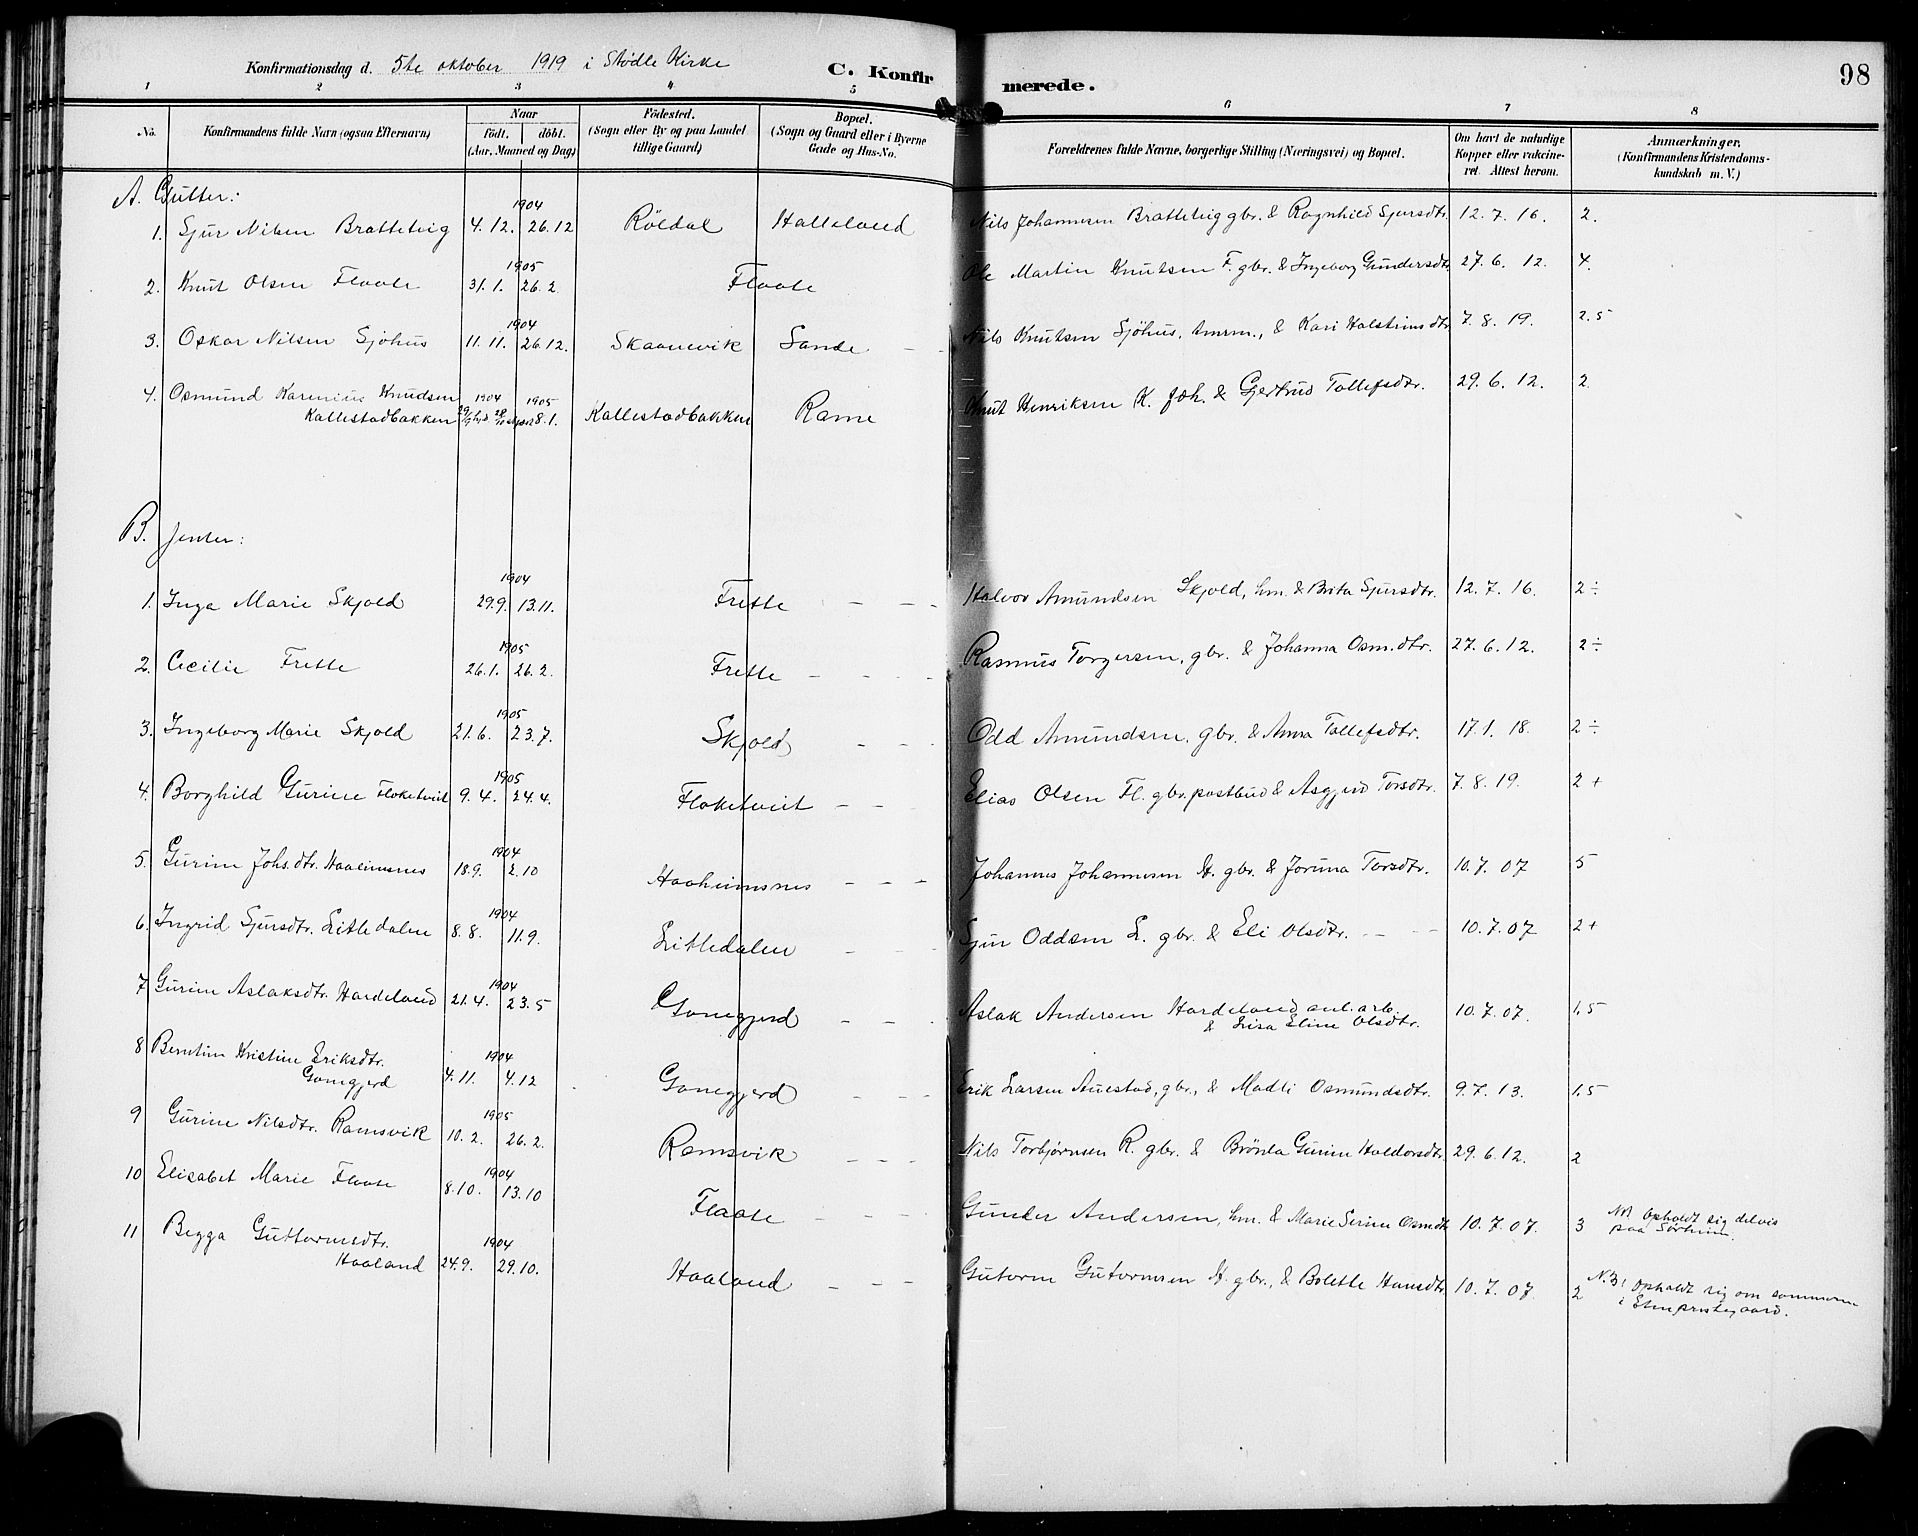 Konfirmationsdag d. 5te oktober 1919 i Stødle Kirke C. Konfirmerede. 98
1 2 3 4 5 6 7 8
No. Konfirmandens fulde Navn (ogsaa Efternavn) Naar født. døbt. (Aar, Maaned og Dag) Fødested. (Sogn eller By og paa Landet tillige Gaard) Bopæl. (Sogn og Gaard eller i Byerne Gade og Hus-No. Forældrenes fulde Navne, borgerlige Stilling (Næringsvei) og Bopæl. Om havt de naturlige Kopper eller vakcineret. Attest herom. Anmærkninger. (Konfirmandens Kristendomskundskab m. V.)
A. Gutter:
1904
1. Sjur Nilsen Brattetveig 4.12. 26.12 Röldal Halleland Nils Johannesen Bratteteig gbr. & Ragnhild Sjursdtr. 12.7.16. 2.
1905
2. Knut Olsen Flaate 31.1. 26.2. Flaate Ole Martin Knutsen F. gbr. & Ingeborg Gundersdtr. 27.6.12. 4.
1904
3. Oskar Nilsen Sjöhus 11.11. 26.12. Skaanevik Sande Nils Knutsen Sjöhus, tmrm., & Kari Halstensdtr. 7.8.19. 2.5
4. Osmund Karenius Knudsen 1904 1905
Kallestadbakken 8.1. Kallestadbakken Rame Knut Henriksen K. & Gjertrud Tollefsdtr. 29.6.12. 2
B. Jenter:
1904
1. Inga Marie Skjold 29.9. 13.11. Frette Halvor Amundsen Skjold, hm. & Brita Sjursdtr. 12.7.16. 2÷
1905
2. Cecilie Frette 26.1. 26.2. Frette Rasmus Torgersen, gbr. & Johanna Osm.dtr. 27.6.12. 2÷
1905
3. Ingeborg Marie Skjold 21.6. 23.7. Skjold Odd Amundsen, gbr. & Anna Tollefsdtr. 17.1.18. 2÷
1905
4. Borghild Gurine Floketveit 9.4. 24.4. Floketveit Elias Olsen Fl. gbr. postbud & Asgjerd Torsdtr. 7.8.19. 2+
1904
5. Gurine Johs.dtr. Haaheimsnes 18.9. 2.10 Haaheimsnes Johannes Johannesen H. gbr. & Joruna Torsdtr. 10.7.07 5
1904
6. Ingrid Sjursdtr. Litledalen 8.8. 11.9. Litledalen Sjur Oddsen L. gbr. & Eli Olsdtr. 10.7.07 2+
1904
7 Gurine Aslaksdtr. Hardeland 21.4. 23.5 Gonegjerd Aslak Andersen Hardeland anl. arb. & Lisa Eline Olsdtr. 10.7.07. 1,5
8 Berntine Kristine Eriksdtr. 1904
Gonegjerd 4.11. 4.12 Gonegjerd Erik Larsen Auestad, gbr., & Madli Osmundsdtr. 9.7.13. 1,5
1905
9 Gurine Nilsdtr. Ramsvik 10.2. 26.2. Ramsvik Nils Torbjørnsen R. gbr. & Brönla Gurine Haldorsdtr. 29.6.12. 2
1904
10 Elisabet Marie Flaate 8.10. 13.10 Flaate Gunder Andersen, hm. & Marie Serine Osmdtr. 10.7.07. 3 NB! Opholdt sig delvis paa Sörheim.
11 Begga Guttormsdtr. 1904
Haaland 24.9. 29.10. Haaland Gutorm Gutormsen H. gbr., & Bolette Hansdtr. 10.7.07. 2 N.B! Opholdt sig om sommeren i Etne prestegaard.